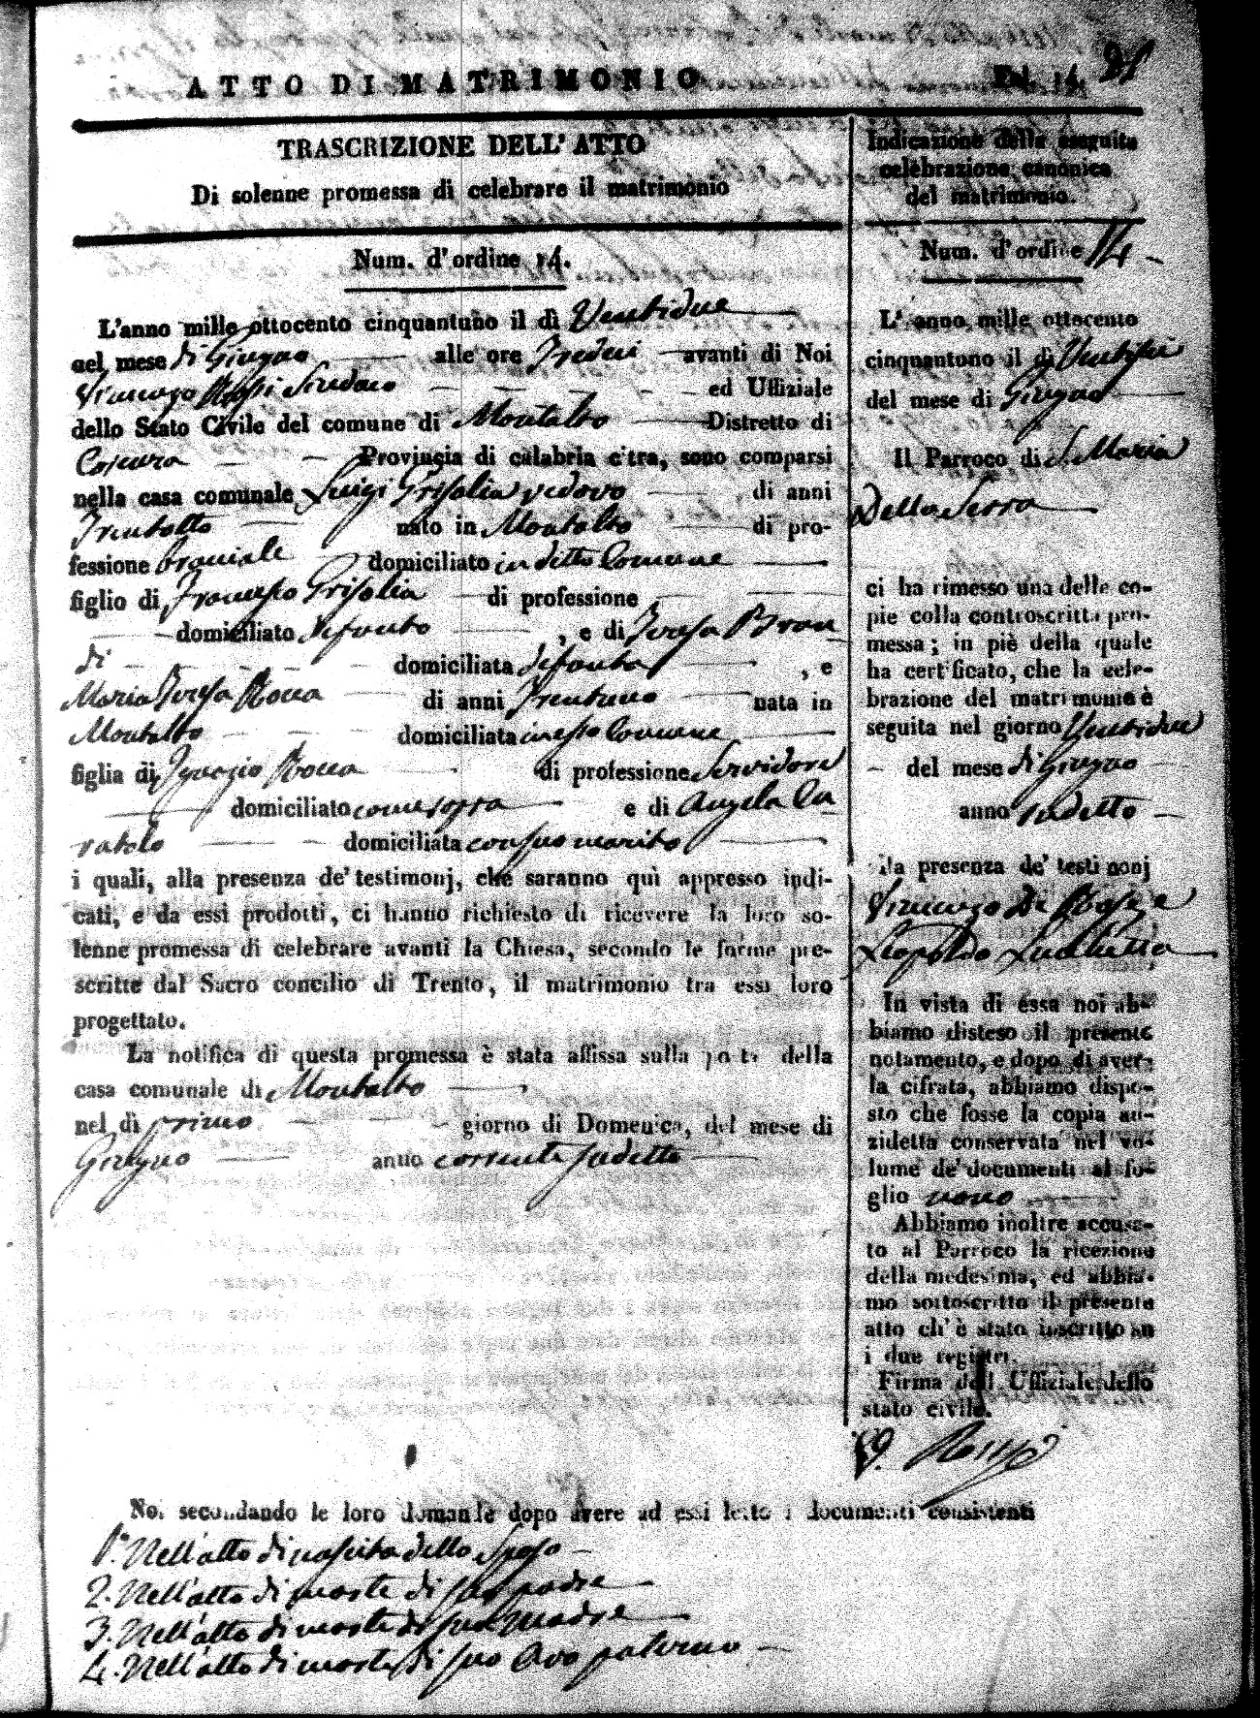 ATTO DI MATRIMONIO
Fol. 14. 21
TRASCRIZIONE DELL' ATTO
Di solenne promessa di celebrare il matrimonio
Num. d'ordine 14.
L'anno mille ottocento cinquantuno il dì Ventidue
nel mese di Giugno alle ore Tredeci avanti di Noi
Vincenzo Rossi Sindaco ed Uffiziale
dello Stato Civile del comune di Montalto Distretto di
Cosenza Provincia di calabria citra, sono comparsi
nella casa comunale Luigi Grisolia vedovo di anni
Trentotto nato in Montalto di pro-
fessione braciale domiciliato in detto Comune
figlio di Francesco Grisolia di professione
domiciliato defonto , e di Teresa Bran
di domiciliata defonta , e
Maria Teresa Rocca di anni Trentuno nata in
Montalto domiciliata in esso Comune
figlia di Ignazio Rocca di professione Servidore
domiciliato come sopra e di Angela Cu
ratolo domiciliata con suo marito
i quali, alla presenza de' testimonj, che saranno quì appresso indi-
cati, e da essi prodotti, ci hanno richiesto di ricevere la loro so-
lenne promessa di celebrare avanti la Chiesa, secondo le forme pre-
scritte dal Sacro concilio di Trento, il matrimonio tra essi loro
progettato.
La notifica di questa promessa è stata affissa sulla porta della
casa comunale di Montalto
nel dì primo giorno di Domenica, del mese di
Giugno anno corrente sudetto
Indicazione della eseguita
celebrazione canonica
del matrimonio.
Num. d'ordine 14
L'anno mille ottocento
cinquantuno il dì Ventisei
del mese di Giugno
Il Parroco di S. Maria
Della Serra
ci ha rimesso una delle co-
pie colla controscritta pro-
messa; in piè della quale
ha certificato, che la cele-
brazione del matrimonio è
seguita nel giorno Ventidue
del mese di Giugno
anno sudetto
alla presenza de' testimonj
Vincenzo De
Leopoldo Luchetta
In vista di essa noi ab-
biamo disteso il presente
notamento, e dopo di aver-
la cifrata, abbiamo dispo-
sto che fosse la copia an-
zidetta conservata nel vo-
lume de' documenti al fo-
glio nono
Abbiamo inoltre accusa-
to al Parroco la ricezione
della medesima, ed abbia-
mo sottoscritto il presente
atto ch'è stato inscritto su
i due registri.
Firma dell Uffiziale dello
stato civile.
Noi secondando le loro domande dopo avere ad essi letto i documenti consistenti
1. Nell'atto di nascita dello Sposo
2. Nell'atto di morte di suo padre
3. Nell'atto di morte di sua Madre
4. Nell'atto di morte di suo Avo paterno